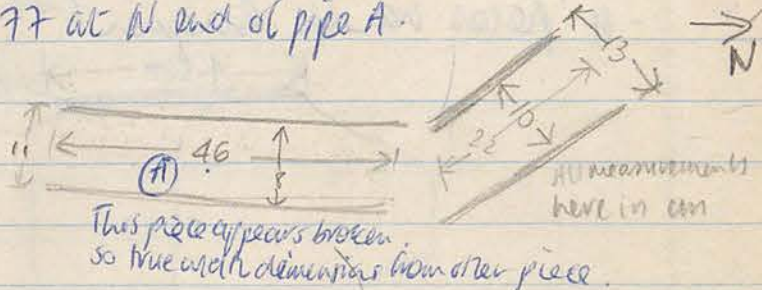 77 at N end of pipe A.
13
N
11
46
10
22
A
8
All measurements
here in cm
This piece appears broken.
so true width dimensions from other piece.